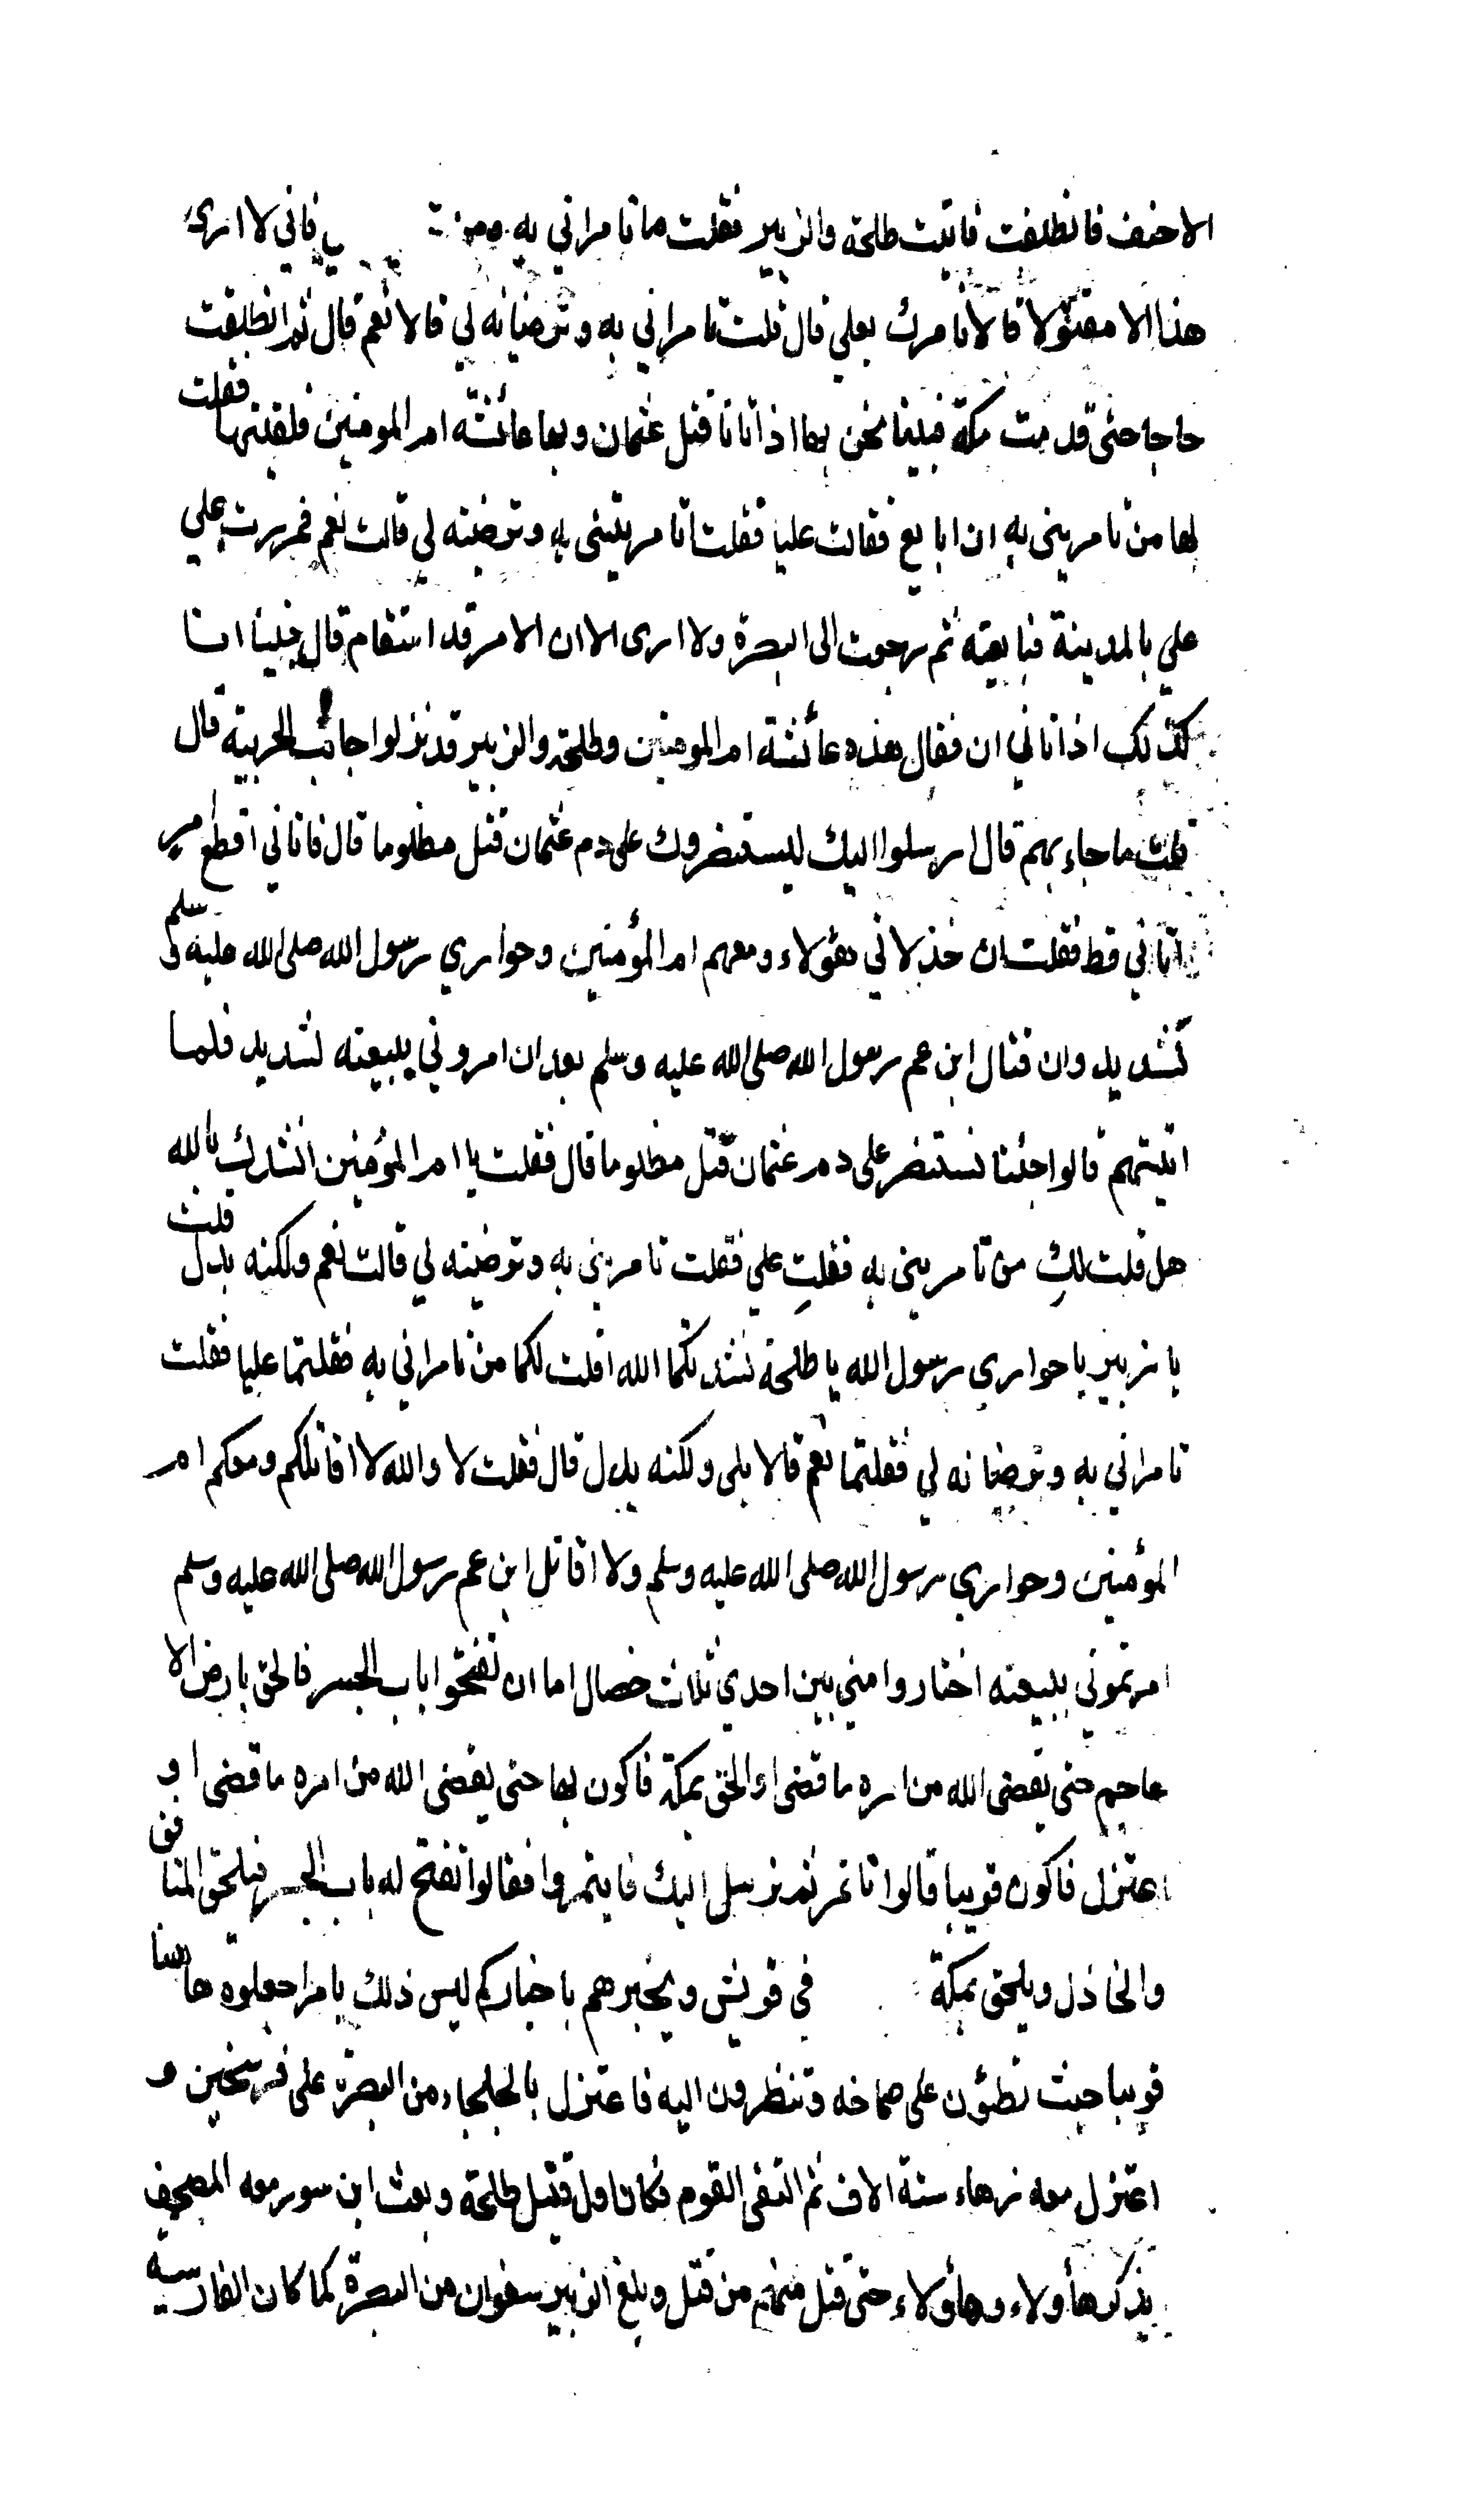 الاحنف فانطلقت فاتيت طلحة والزبير فقلت ما تامراني به فاني لا ارى
هذا الا مقتولا قالا نامرك بعلي قال قلت تامراني به وترضيانه لي قالا نعم قال ثم انطلقت
حاجا حتى قدمت مكة فبينا نحن بها اذ اتانا قتل عثمان وبها عائشة ام المومنين فلقيتها فقلت
لها من تامريني به ان ابايع فقالت عليا فقلت تامرينني به وترضينه لي قالت نعم فمررت على
علي بالمدينة فبايعته ثم رجعت الى البصرة ولا ارى الا ان الامر قد استقام قال فبينا انا
كذلك اذ اتاني ان فقال هذه عائشة ام المومنين وطلحة والزبير قد نزلوا جانب الحريبة قال
قلت ما جاء بهم قال ارسلوا اليك ليستنصروك على دم عثمان قتل مظلوما قال فاتاني اقطع مر
اتاني قط فقلت ان خذلاني هؤلاء ومعهم ام المؤمنين وحواري رسول الله صلى الله عليه وسلم
لشديد وان قتال ابن عم رسول الله صلى الله عليه وسلم بعد ان امروني ببيعته لشديد فلما
اتيتهم قالوا جئنا نستنصر على دم عثمان قتل مظلوما قال فقلت يا ام المؤمنين انشدك بالله
هل قلت لك من تامريني به فقلت علي فقلت تامريني به وترضينه لي قالت نعم ولكنه بدل قلت
يا زبير يا حواري رسول الله يا طلحة نشدتكما الله اقلت لكما من تامراني به فقلتما عليا فقلت
تامراني به وترضيانه لي فقلتما نعم قالا بلى ولكنه بدل قال فقلت لا والله لا اقاتلكم ومعكم ام
المؤمنين وحواري رسول الله صلى الله عليه وسلم ولا اقاتل ابن عم رسول الله صلى الله عليه وسلم
امرتموني ببيعته اختاروا مني بين احدى ثلاث خصال اما ان تفتحوا باب الجسر فالحق بارض الا
عاجم حتى يقضى الله من امره ما قضى او الحق بمكة فاكون بها حتى يقضى الله من امره ما قضى او
اعتزل فاكون قريبا قالوا ناتمر ثم نرسل اليك فايتمروا فقالوا تفتح له باب الجسر فيلحق المنافق
والخاذل ويلحق بمكة في قريش ويخبرهم باخباركم ليس ذلك بامر اجعلوه هاهنا
قريبا حيث تطئون على صماخه وتنظرون اليه فاعتزل بالجلحاء من البصرة على فرسخين و
اعتزل معه زهاء ستة الاف ثم التقى القوم فكان اول قتيل طلحة وبعث ابن سور معه المصحف
يذكر هأولاء وهأولاء حتى قتل منهم من قتل وبلغ الزبير سفوان من البصرة كما كان القادسية